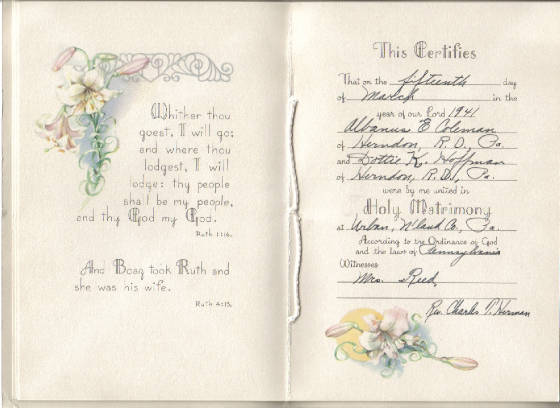 Whither thou
goest, I will go;
and where thou
lodgest, I will
lodge: thy people
shall be my people,
and thy God my God.
Ruth 1:16.
And Boaz took Ruth and
she was his wife.
Ruth 4:13.
This Certifies
That on the fifteenth day
of March in the
year of our Lord 1941
Albanus E Coleman
of Herndon, R.D., Pa.
and Dottie K. Hoffman
of Herndon, R.D., Pa.
were by me united in
Holy Matrimony
at Urban, N'land Co., Pa.
According to the Ordinance of God
and the Laws of Pennsylvania
Witnesses
Mrs. Reed
Rev. Charles T. Herman